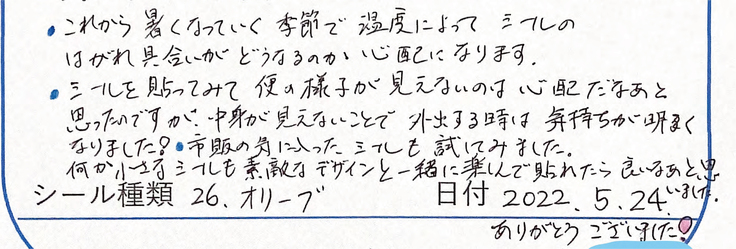 ・これから暑くなっていく季節で温度によってシールの
はがれ具合いがどうなるのか心配になります。
・シールを貼ってみて便の様子が見えないのは心配だなあと
思ったのですが、中身が見えないことで外出する時は気持ちが明るく
なりました!・市販の気に入ったシールも試してみました。
何か小さなシールも素敵なデザインと一緒に楽しんで貼れたら良いなあと思
いました。
シール種類 26. オリーブ 日付 2022. 5. 24.
ありがとうございました!